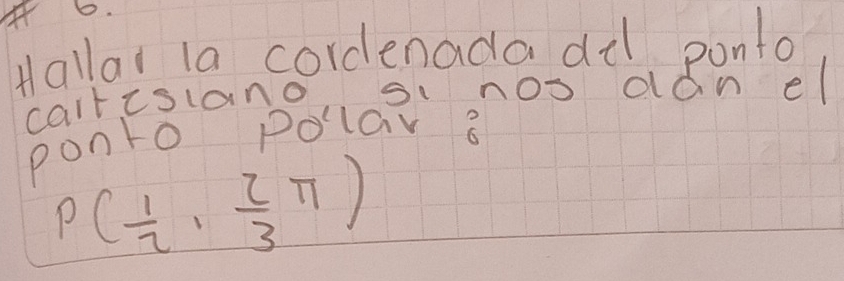 # 6.
Hallar la cordenada del ponto
cartesiano si nos dan el
ponto polar :
P(1/2, 2/3 π)